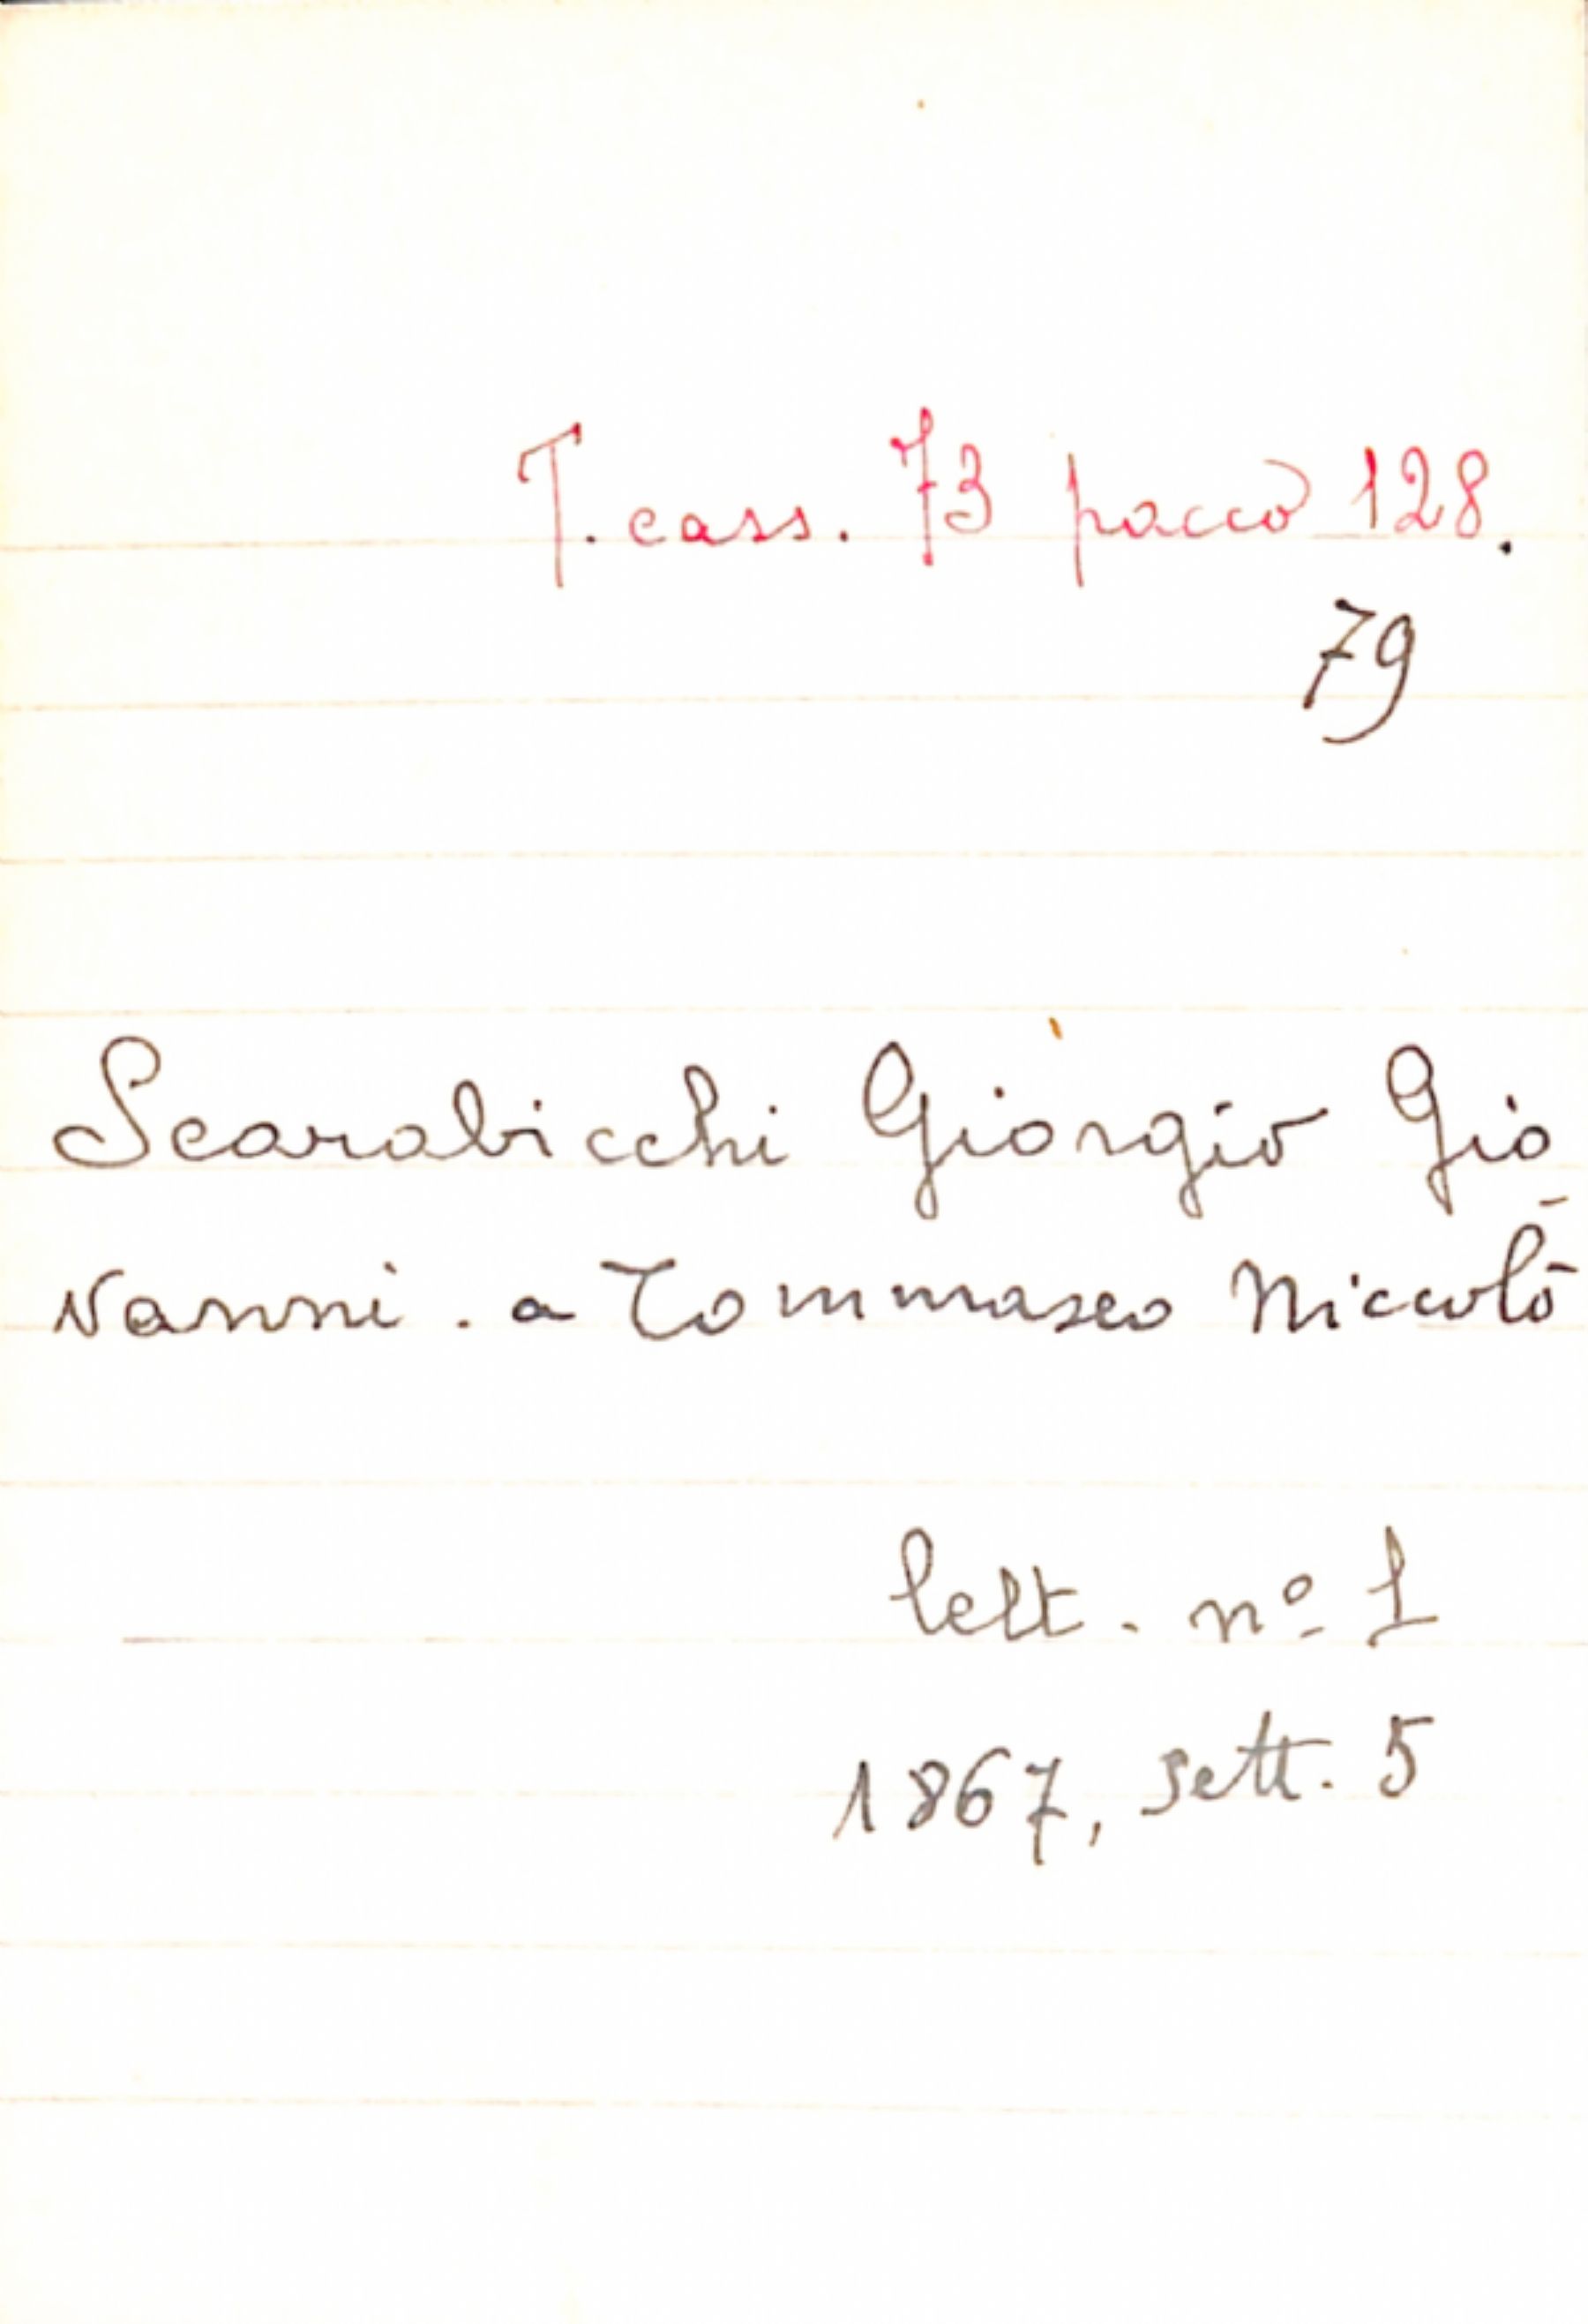 T. cass. 73 pacco 128.
79
Scarabicchi Giorgio Gio
-
vanni. a Tommaseo Niccolò
lett. nº 1
1867, sett. 5